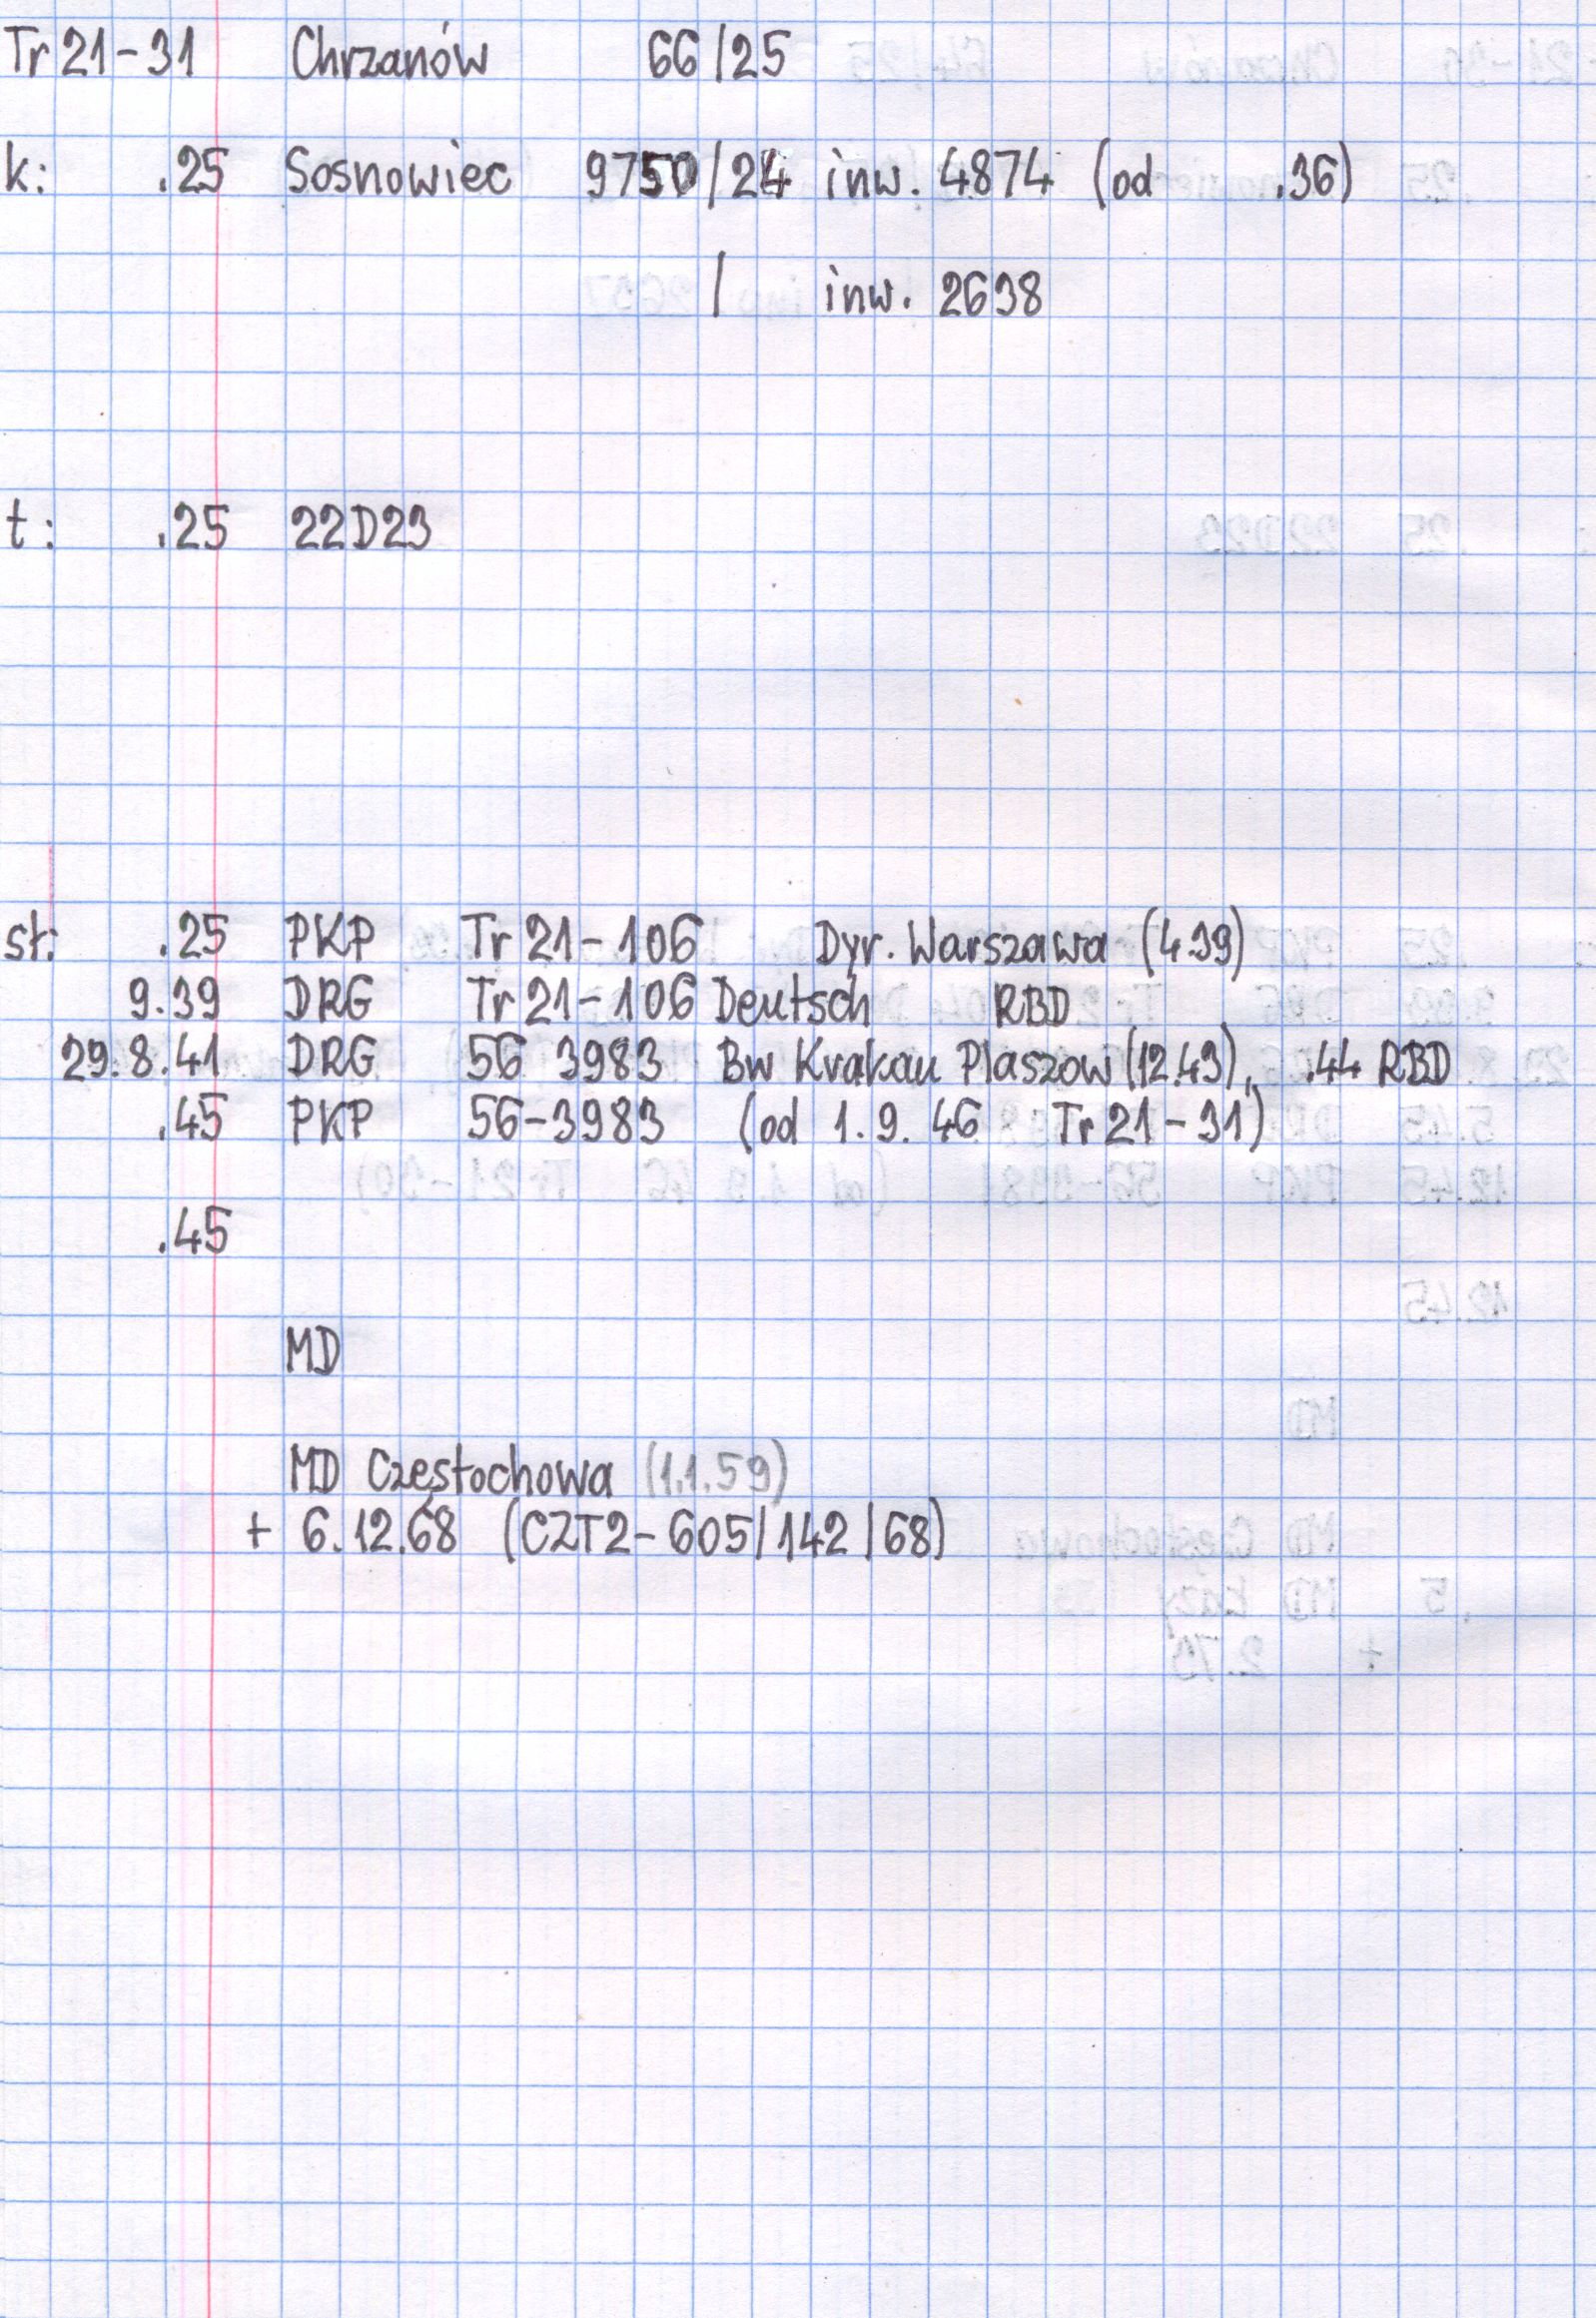 Tr 21-31 Chrzanów 66/25
k: .25 Sosnowiec 9750/24 inw. 4874 (od .36)
/ inw. 2638
t: .25 22D23
sł: .25 PKP Tr 21-106 Dyr. Warszawa (4.39)
9.39 DRG Tr 21-106 Deutsch RBD
29.8.41 DRG 56 3983 Bw Krakau Plaszow (12.43), .44 RBD
.45 PKP 56-3983 (od 1.9.46 Tr 21-31)
.45
MD
MD Częstochowa (1.1.59)
+ 6.12.68 (CZT2-605/142/68)